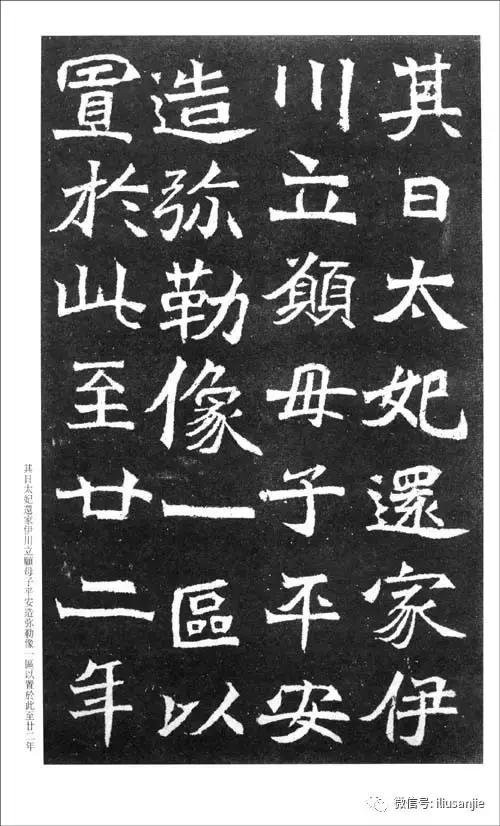 其日太妃還家伊
川立願母子平安
造弥勒像一區以
置於此至廿二年
其日太妃還家伊川立願母子平安造弥勒像一區以置於此至廿二年
微信号: iliusanjie